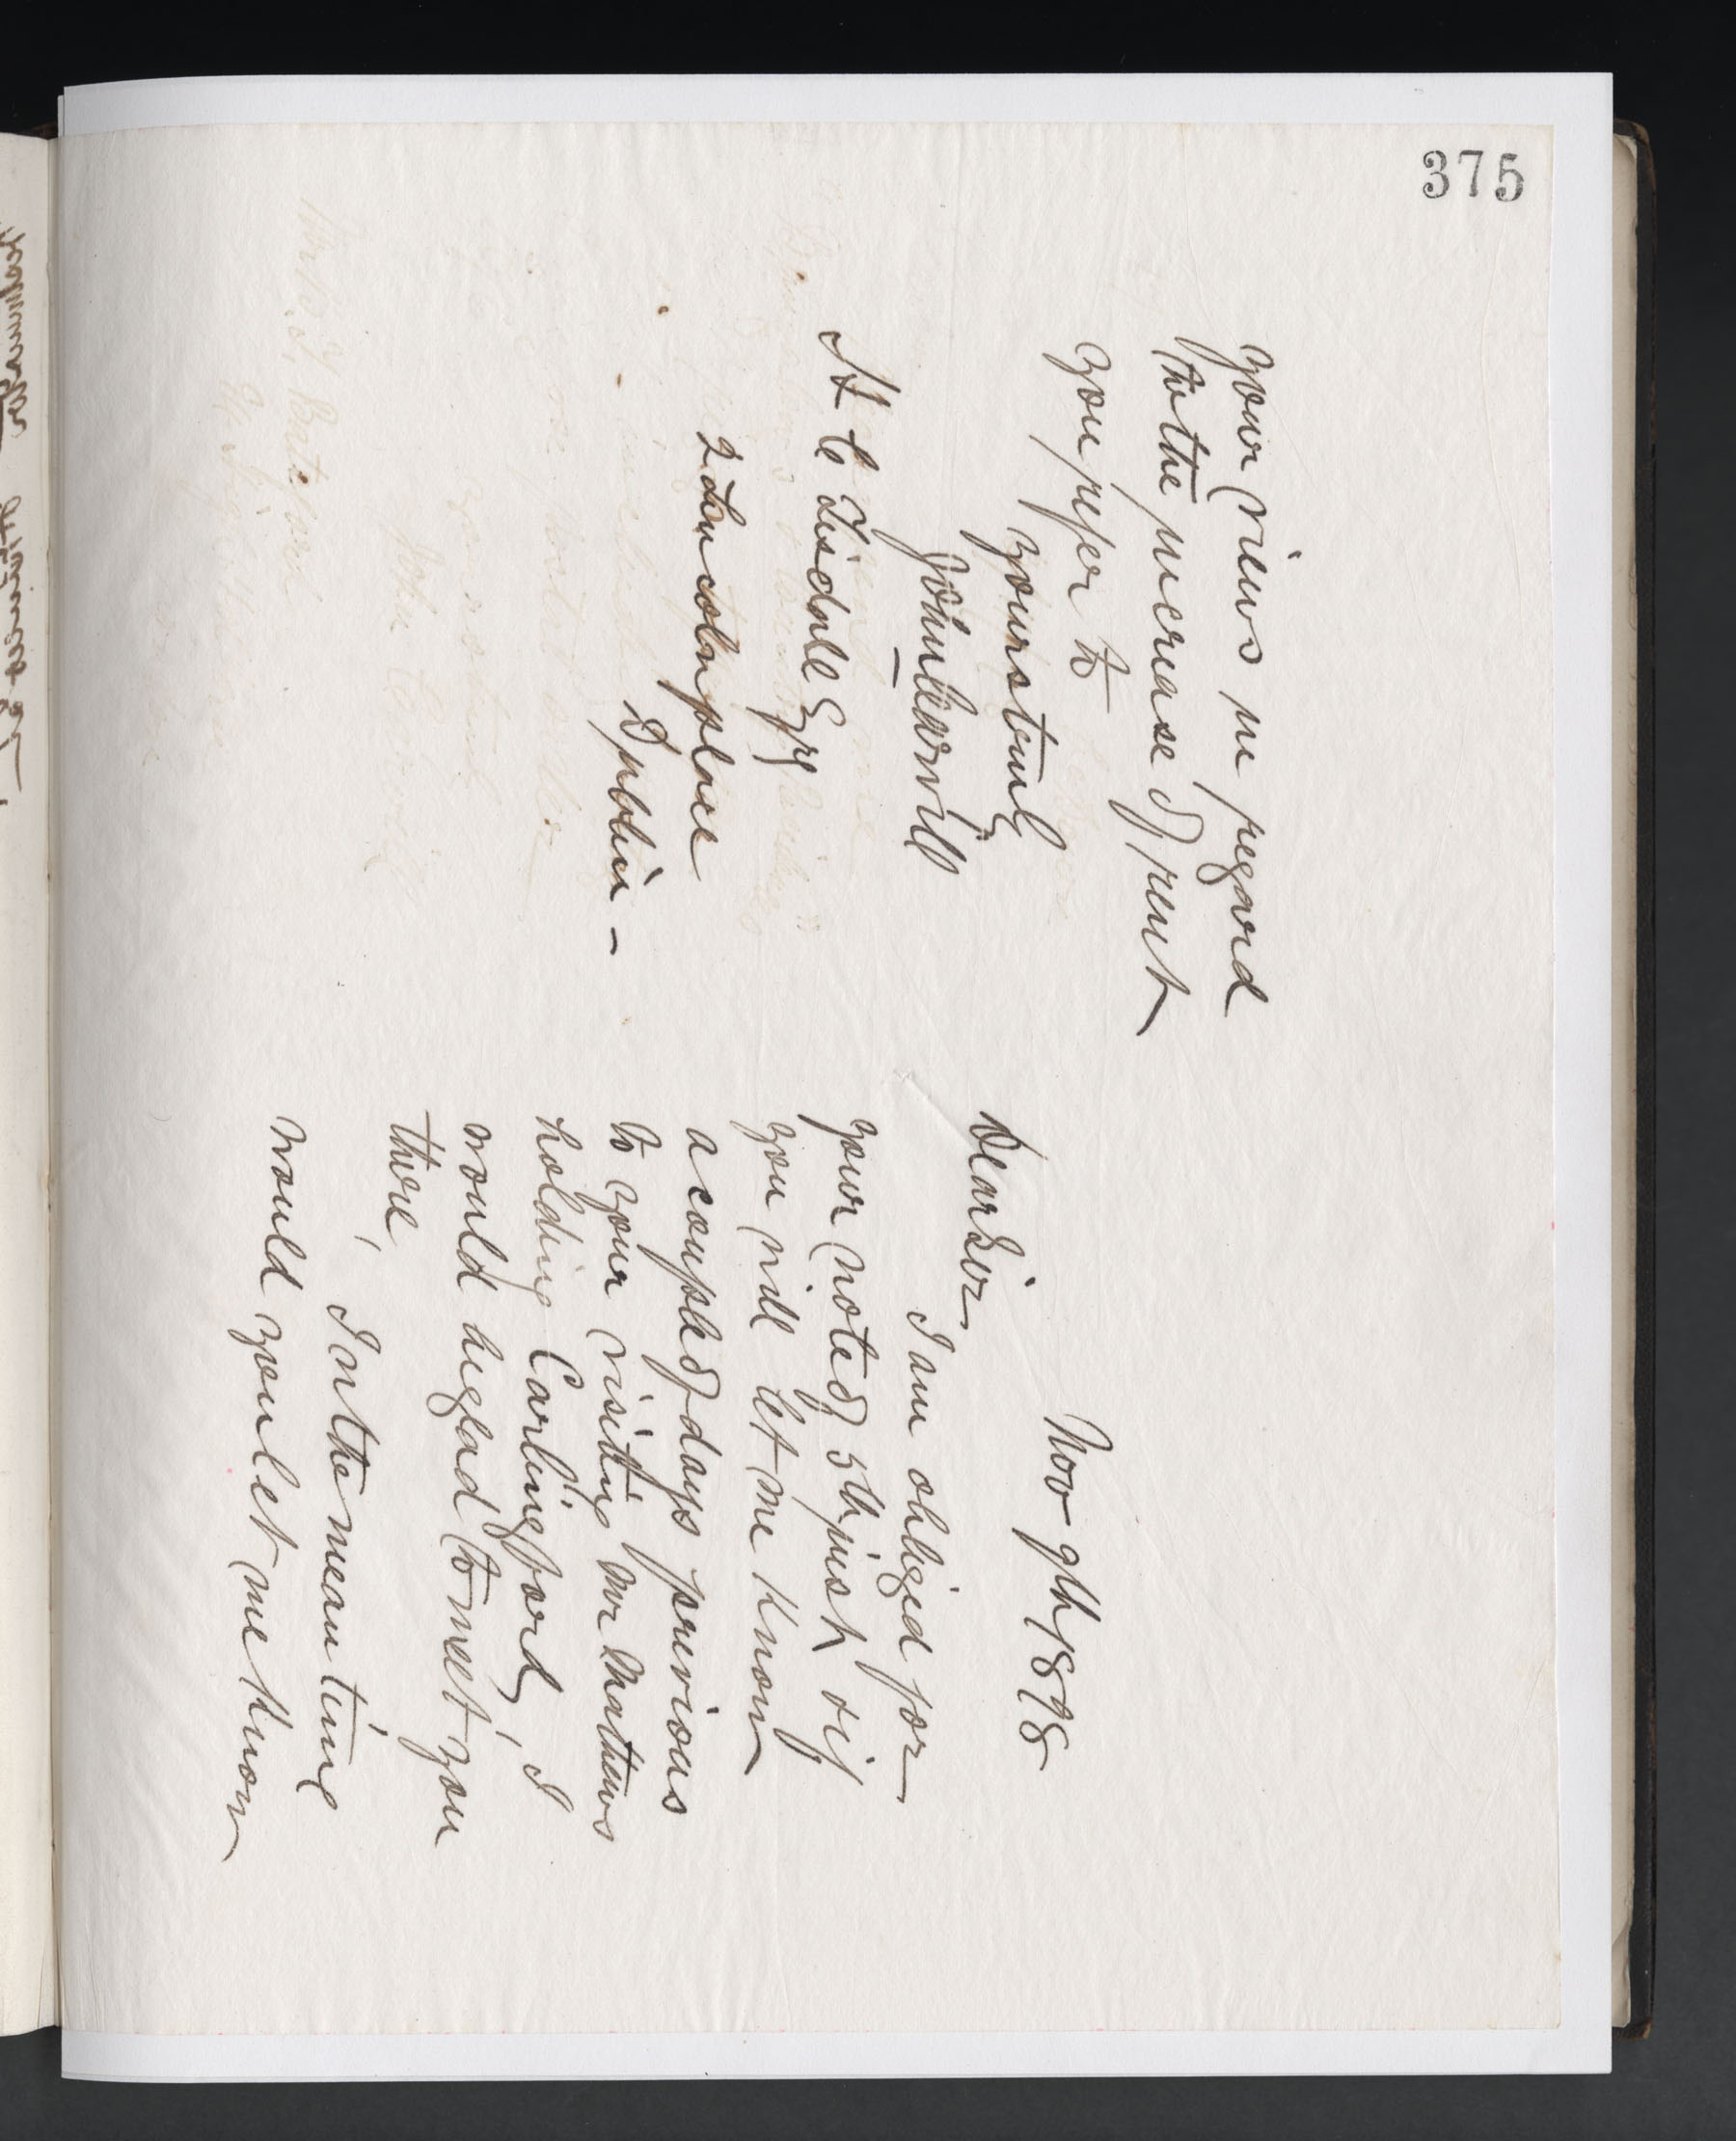 375
Nov 9th 1898
Dear Sir
I am obliged for
your note of 5th inst, & if
you will let me know
a couple of days previous
to your visiting Mr Mathews
holding Carlingford, I
would be glad to meet you
there,
In the mean time
would you let me know
your views in regard
to the increase of rent
you refer to
yours truly
John Carvill
H C Tisdall Esqr
2 Lincoln place
Dublin -